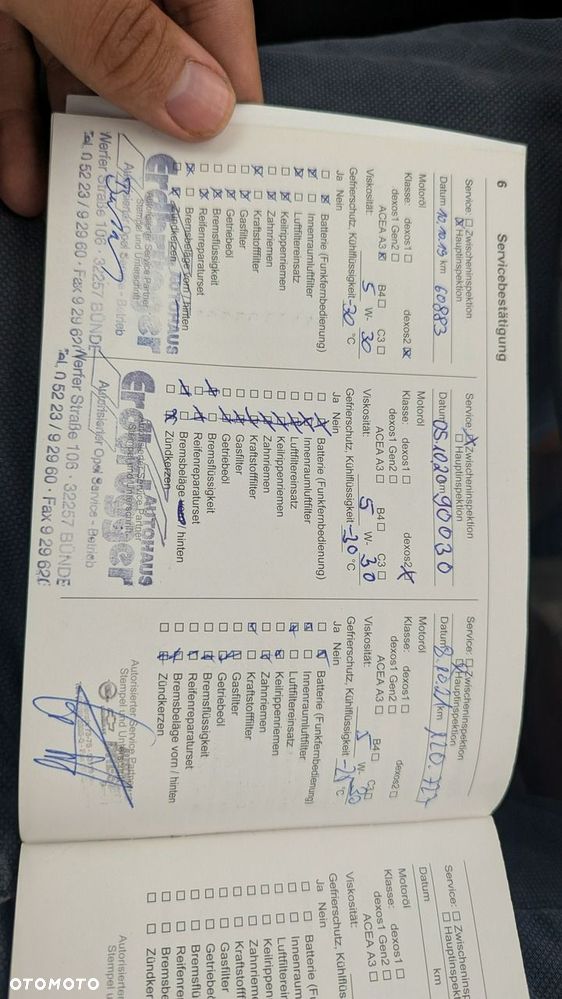 6
Servicebestätigung
Service: ☐ Zwischeninspektion
☒ Hauptinspektion
Datum 10.10.19 km 60883
Motoröl
Klasse: dexos1 ☐ dexos2 ☒
dexos1 Gen2 ☐
ACEA A3 ☒ B4 ☐ C3 ☐
Viskosität: 5 W- 30
Gefrierschutz, Kühlflüssigkeit -30 °C
Ja Nein
Batterie (Funkfernbedienung)
Innenraumluftfilter
Luftfiltereinsatz
Keilrippenriemen
Zahnriemen
Kraftstofffilter
Gasfilter
Getriebeöl
Bremsflüssigkeit
Reifenreparaturset
Bremsbeläge vorn / hinten
Zündkerzen
Autorisierter Service Partner
Stempel und Unterschrift
AUTOHAUS
Autorisierter Opel Service - Betrieb
Werfer Straße 106 · 32257 BÜNDE
Tel. 0 52 23 / 9 29 60 · Fax 9 29 62
Service: ☒ Zwischeninspektion
☐ Hauptinspektion
Datum 05.10.20 km 90030
Motoröl
Klasse: dexos1 ☐ dexos2 ☒
dexos1 Gen2 ☐
ACEA A3 ☐ B4 ☐ C3 ☐
Viskosität: 5 W- 30
Gefrierschutz, Kühlflüssigkeit -30 °C
Ja Nein
Batterie (Funkfernbedienung)
Innenraumluftfilter
Luftfiltereinsatz
Keilrippenriemen
Zahnriemen
Kraftstofffilter
Gasfilter
Getriebeöl
Bremsflüssigkeit
Reifenreparaturset
Bremsbeläge vorn / hinten
Zündkerzen
AUTOHAUS
Autorisierter Opel Service - Betrieb
Werfer Straße 106 · 32257 BÜNDE
Tel. 0 52 23 / 9 29 60 · Fax 9 29 620
Service: ☐ Zwischeninspektion
☒ Hauptinspektion
Datum km 120.727
Motoröl
Klasse: dexos1 ☐ dexos2 ☐
dexos1 Gen2 ☐
ACEA A3 ☐ B4 ☐ C3 ☐
Viskosität: 5 W- 30
Gefrierschutz, Kühlflüssigkeit °C
Ja Nein
Batterie (Funkfernbedienung)
Innenraumluftfilter
Luftfiltereinsatz
Keilrippenriemen
Zahnriemen
Kraftstofffilter
Gasfilter
Getriebeöl
Bremsflüssigkeit
Reifenreparaturset
Bremsbeläge vorn / hinten
Zündkerzen
Autorisierter Service Partner
Stempel und
Service: ☐ Zwischeninspek
☐ Hauptinspekt
Datum km
Motoröl
Klasse: dexos1 ☐
dexos1 Gen2 ☐
ACEA A3 ☐
Viskosität:
Gefrierschutz, Kühlflüss
Ja Nein
Batterie (Funk
Innenraum
Luftfiltereins
Keilrippenrie
Zahnriemen
Kraftstofffilt
Gasfilter
Getriebeöl
Bremsflüss
Reifenrepa
Bremsbelä
Zündkerze
Autorisierter
Stempel u
OTOMOTO